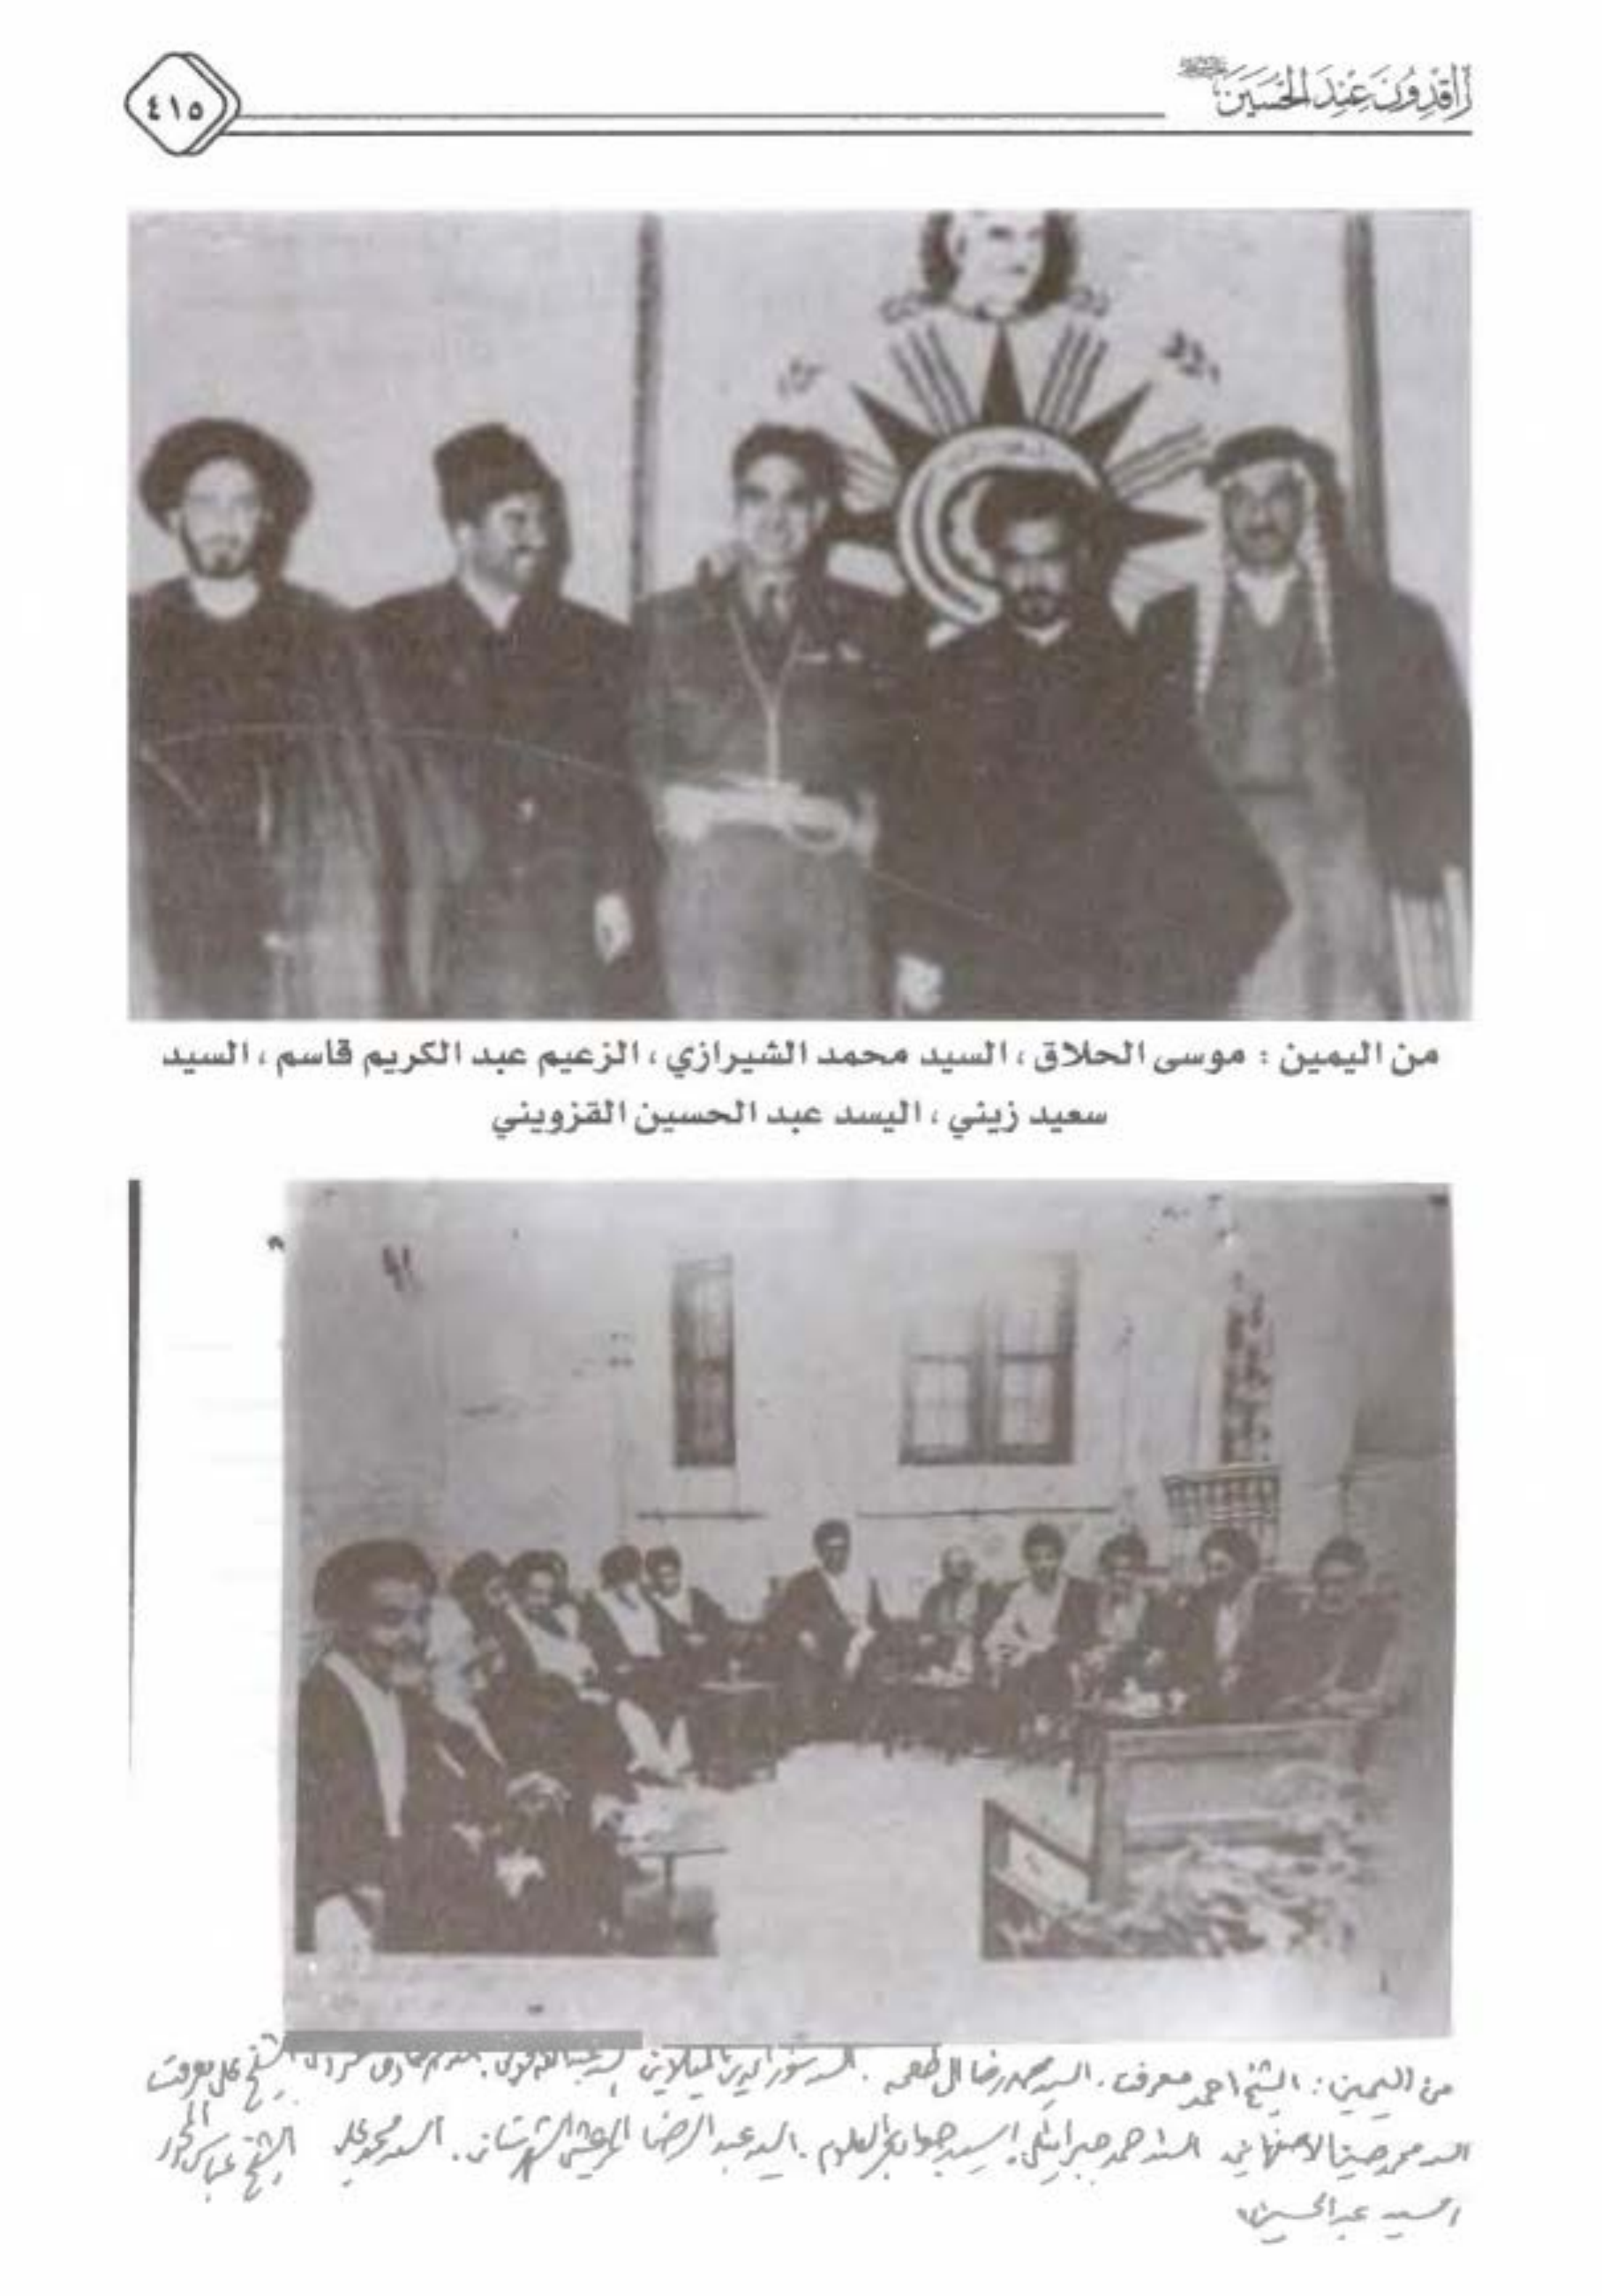 راقدون عند الحسين
٤١٥
من اليمين : موسى الحلاق ، السيد محمد الشيرازي ، الزعيم عبد الكريم قاسم ، السيد
سعيد زيني ، اليسد عبد الحسين القزويني
من اليمين : الشيخ احمد معرفت . السيد محمد رضا ال طعمه . السيد نور الدين الميلاني الشيخ علي معرفت
السيد محمد الاصفهاني السيد احمد جبرائيلي السيد جواد بحر العلوم . السيد عبد الرضا المرعشي الشهرستاني . السيد محمد علي الشيخ عباس
السيد عبد الحسين